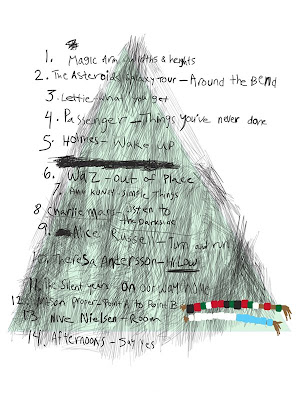 1. Magic Arm - widths & heights
2. The Asteroids Galaxy Tour - Around the Bend
3. Lettie - What you get
4. Passenger - Things you've never done
5. Holmes - Wake up
6. WAZ - out of Place
7. Amy Kuney - Simple Things
8 Charlie Mars - Listen to
the Darkside
9. Alice Russell - Turn and run
10. Theresa Andersson - Hi Low
11. The Silent years On our way
12. Mason Proper - Point A to Point B
13. Nive Nielsen - Room
14. Afternoons - Say yes